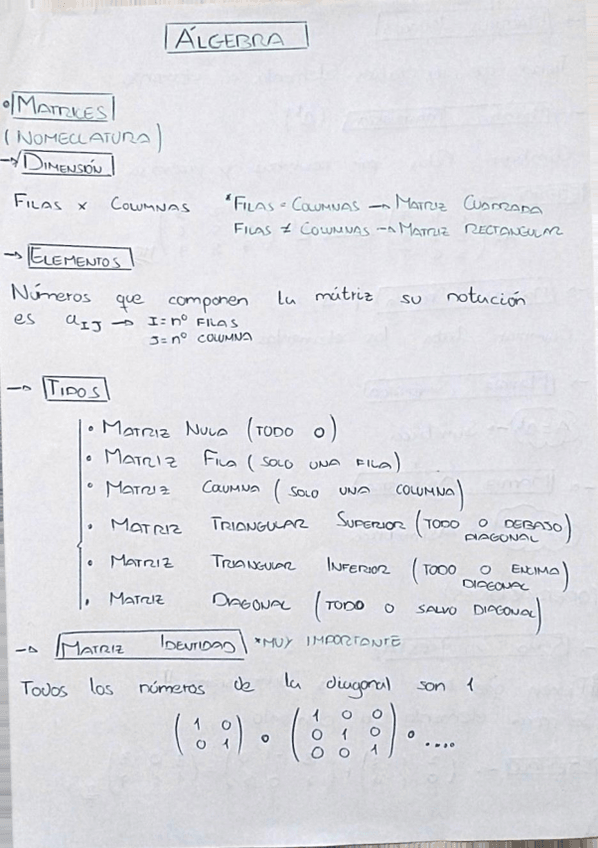 ÁLGEBRA
• MATRICES
(NOMECLATURA)
→ DIMENSIÓN
FILAS x COLUMNAS *FILAS = COLUMNAS → MATRIZ CUADRADA
FILAS ≠ COLUMNAS → MATRIZ RECTANGULAR
→ ELEMENTOS
Números que componen la mátriz su notución
es a_IJ → I = nº FILAS
J = nº COLUMNA
→ TIPOS
• MATRIZ NULA (TODO 0)
• MATRIZ FILA (SOLO UNA FILA)
• MATRIZ COLUMNA (SOLO UNA COLUMNA)
• MATRIZ TRIANGULAR SUPERIOR (TODO 0 DEBAJO DIAGONAL)
• MATRIZ TRIANGULAR INFERIOR (TODO 0 ENCIMA DIAGONAL)
• MATRIZ DIAGONAL (TODO 0 SALVO DIAGONAL)
→ MATRIZ IDENTIDAD *MUY IMPORTANTE
Todos los números de la diagonal son 1
(1 0
0 1) o (1 0 0
0 1 0
0 0 1) o ....